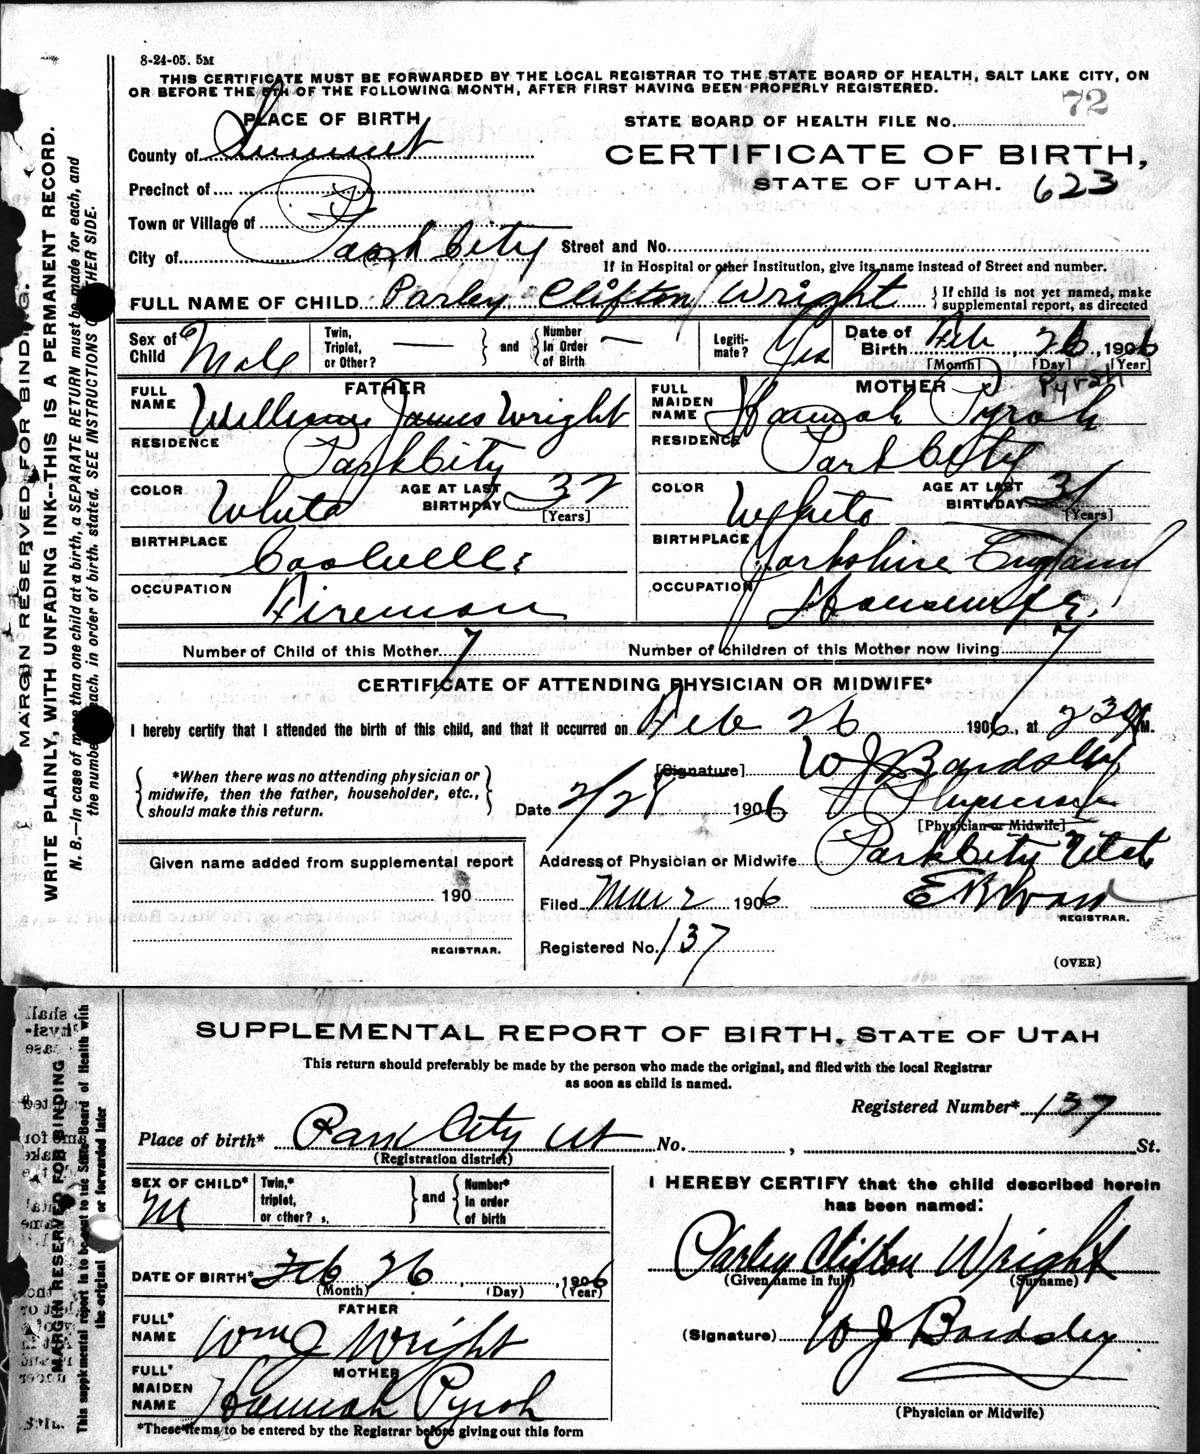 8-24-05. 5M
THIS CERTIFICATE MUST BE FORWARDED BY THE LOCAL REGISTRAR TO THE STATE BOARD OF HEALTH, SALT LAKE CITY, ON
OR BEFORE THE 5TH OF THE FOLLOWING MONTH, AFTER FIRST HAVING BEEN PROPERLY REGISTERED.
72
PLACE OF BIRTH
STATE BOARD OF HEALTH FILE No.
County of Summit
CERTIFICATE OF BIRTH,
Precinct of
STATE OF UTAH. 623
Town or Village of
City of Park City Street and No.
If in Hospital or other Institution, give its name instead of Street and number.
FULL NAME OF CHILD Parley Clifton Wright } If child is not yet named, make
supplemental report, as directed
Sex of Child Male
Twin, Triplet, or Other? — } and { Number In Order of Birth —
Legitimate? Yes
Date of Birth Feb, 26, 1906
[Month] [Day] [Year]
FATHER
FULL NAME William James Wright
RESIDENCE Park City
COLOR White AGE AT LAST BIRTHDAY 32
[Years]
BIRTHPLACE Coalville
OCCUPATION Fireman
MOTHER Pyrah
FULL MAIDEN NAME Hannah Pyrah
RESIDENCE Park City
COLOR White AGE AT LAST BIRTHDAY 31
[Years]
BIRTHPLACE Yorkshire England
OCCUPATION Housewife
Number of Child of this Mother 7 Number of children of this Mother now living 7
CERTIFICATE OF ATTENDING PHYSICIAN OR MIDWIFE*
I hereby certify that I attended the birth of this child, and that it occurred on Feb 26 1906, at 230 M.
{ *When there was no attending physician or
midwife, then the father, householder, etc.,
should make this return. }
[Signature] W J Bardsley
Date 2/28 1906 Physician
[Physician or Midwife]
Given name added from supplemental report
190
REGISTRAR.
Address of Physician or Midwife Park City Utah
Filed Mar 2 1906
REGISTRAR.
Registered No. 137
(OVER)
MARGIN RESERVED FOR BINDING.
WRITE PLAINLY, WITH UNFADING INK--THIS IS A PERMANENT RECORD.
N. B.—In case of more than one child at a birth, a SEPARATE RETURN must be made for each, and
the number each, in order of birth, stated. SEE INSTRUCTIONS OTHER SIDE.
SUPPLEMENTAL REPORT OF BIRTH, STATE OF UTAH
This return should preferably be made by the person who made the original, and filed with the local Registrar
as soon as child is named.
Registered Number* 137
Place of birth* Park City Ut No. , St.
(Registration district)
SEX OF CHILD* M
Twin,* triplet, or other? } and { Number* In order of birth
DATE OF BIRTH* Feb 26, 1906
(Month) (Day) (Year)
FATHER
FULL* NAME Wm J Wright
MOTHER
FULL* MAIDEN NAME Hannah Pyrah
*These items to be entered by the Registrar before giving out this form
I HEREBY CERTIFY that the child described herein
has been named:
Parley Clifton Wright
(Given name in full) (Surname)
(Signature) W J Bardsley
(Physician or Midwife)
MARGIN RESERVED FOR BINDING
This supplemental report is to be sent to the State Board of Health with
the original or forwarded later